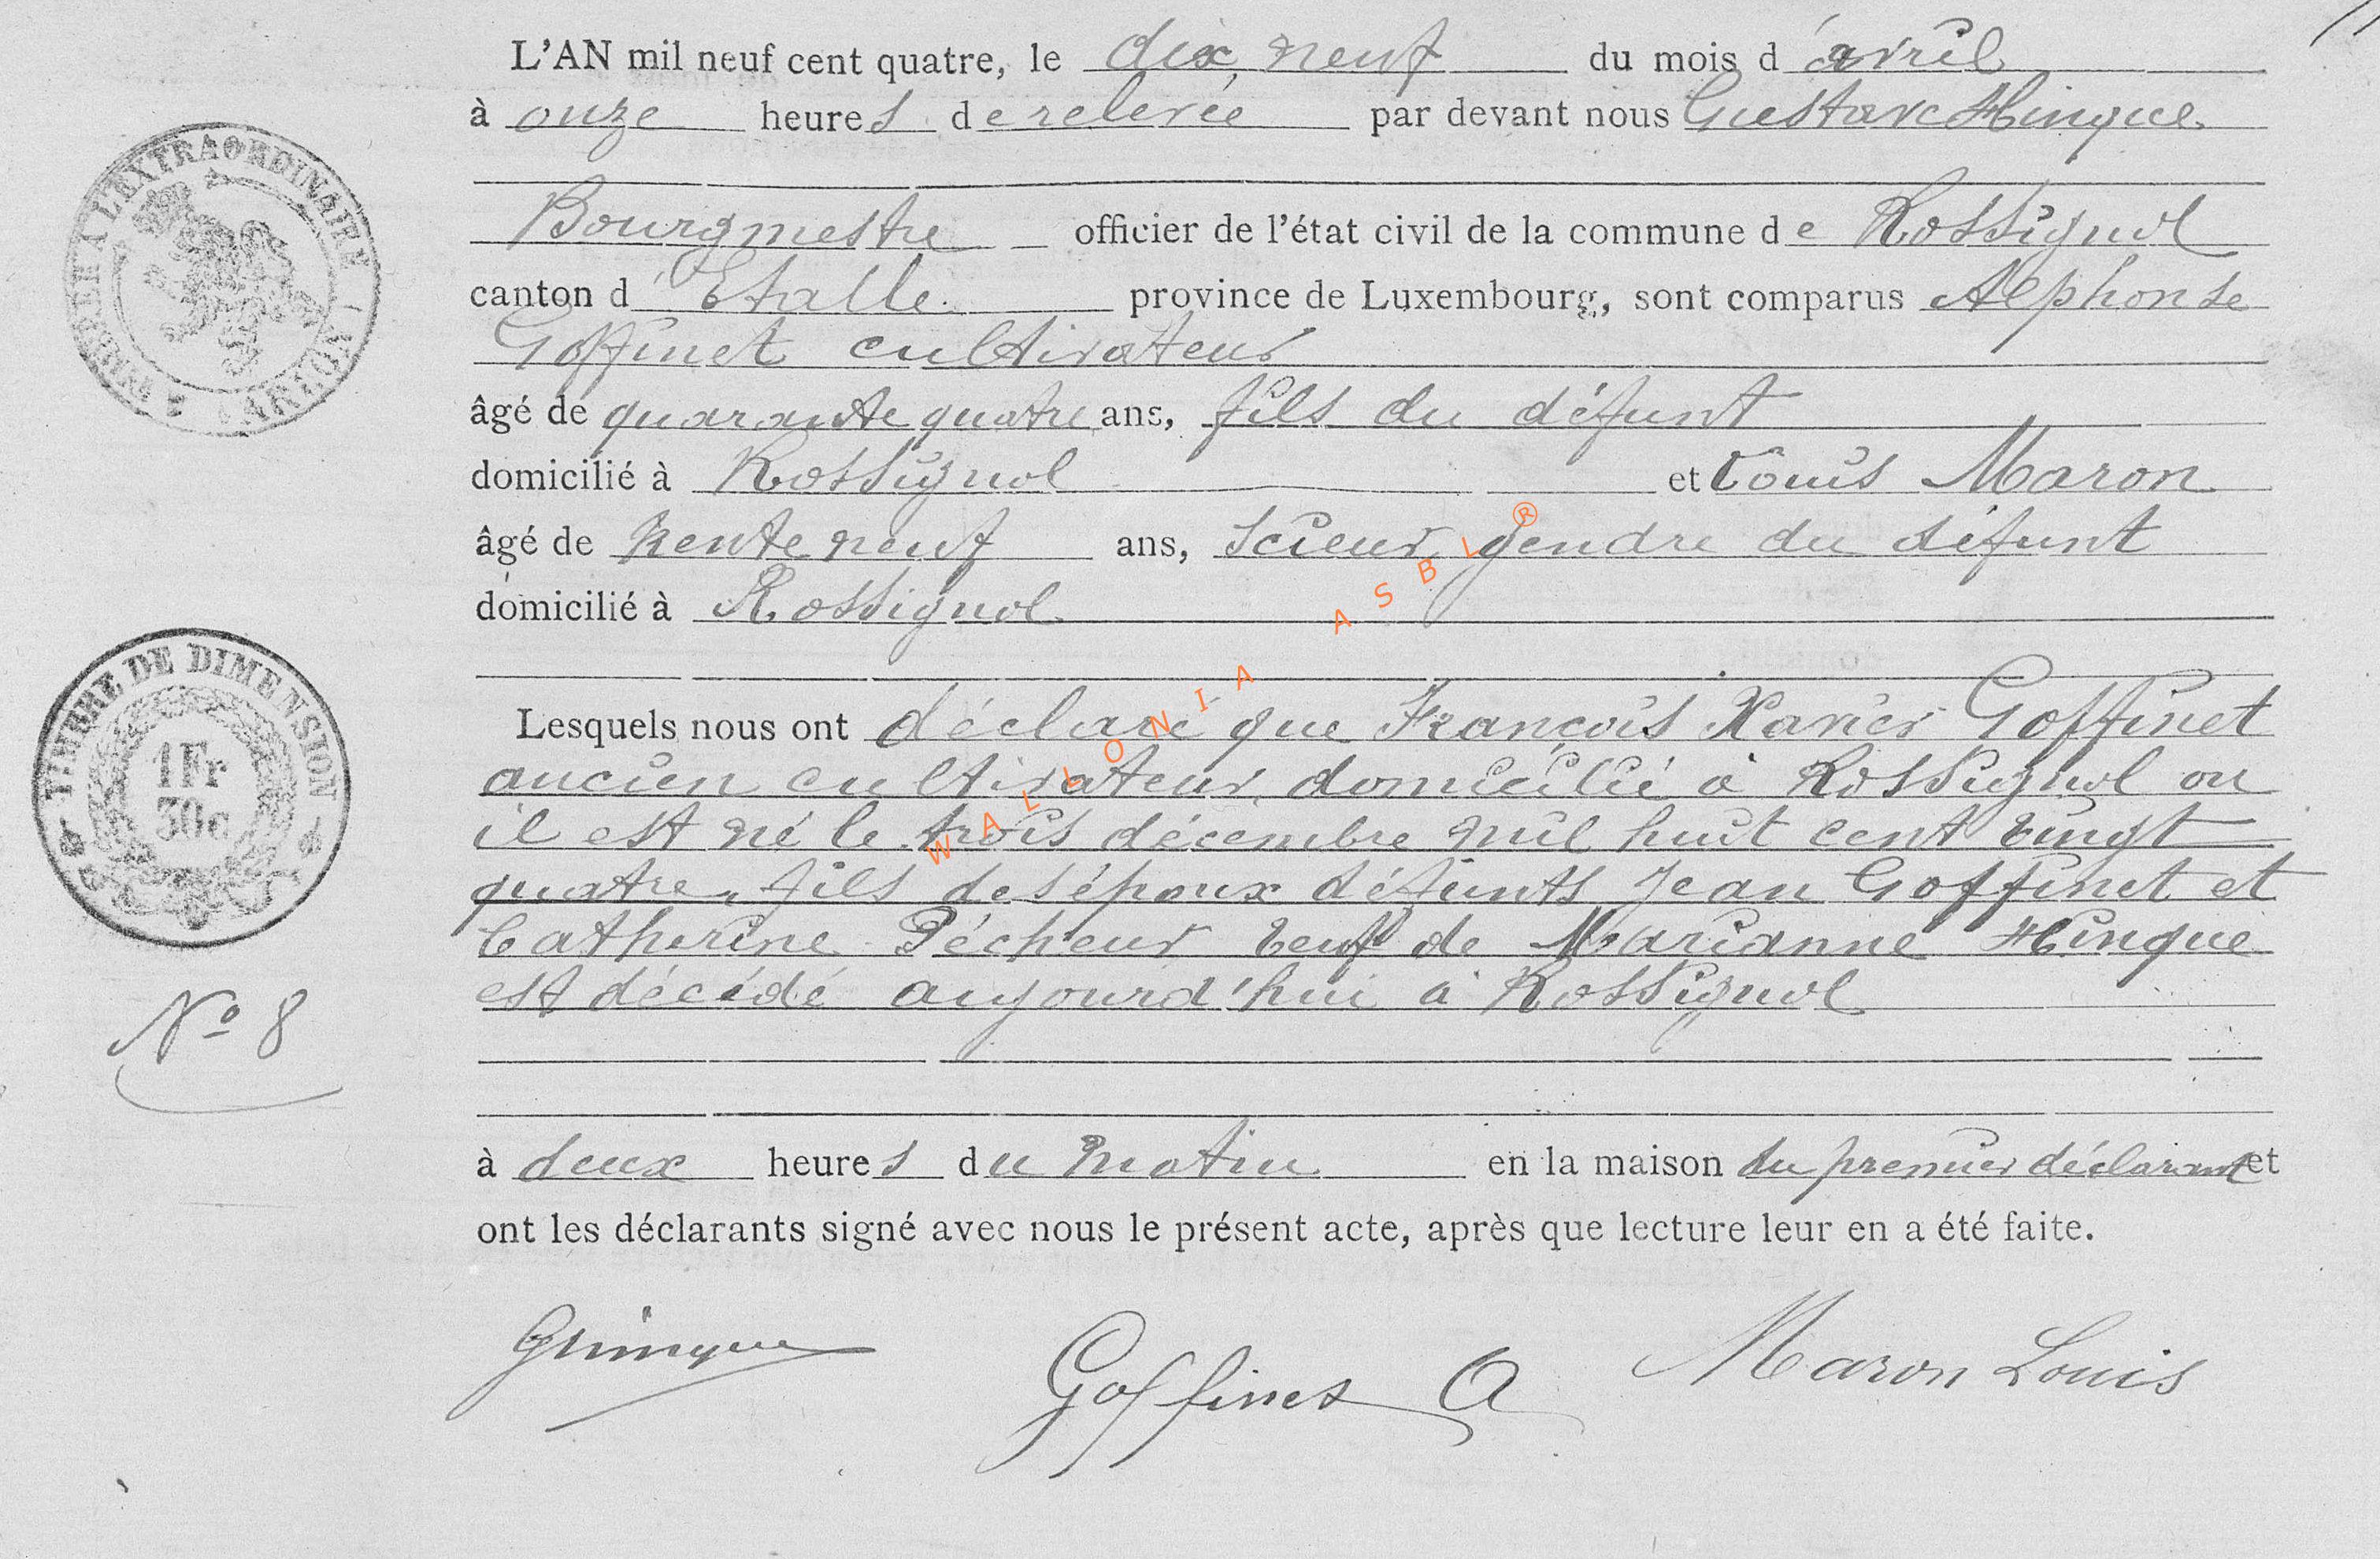 L'AN mil neuf cent quatre, le dix neuf du mois d'avril
à onze heures de relevée par devant nous Gustave Hinque
Bourgmestre officier de l'état civil de la commune de Rossignol
canton d'Etalle province de Luxembourg, sont comparus Alphonse
Goffinet cultivateur
âgé de quarante quatre ans, fils du défunt
domicilié à Rossignol et Louis Maron
âgé de trente neuf ans, scieur, gendre du défunt
domicilié à Rossignol
Lesquels nous ont déclaré que François Xavier Goffinet
ancien cultivateur, domicilié à Rossignol ou
il est né le trois décembre mil huit cent vingt
quatre, fils des époux défunts Jean Goffinet et
Catherine Pécheur veuf de Marianne Hinque
est décédé aujourd'hui à Rossignol
à deux heures du matin en la maison du premier déclarant et
ont les déclarants signé avec nous le présent acte, après que lecture leur en a été faite.
GHinque
Goffinet A
Maron Louis
A L'EXTRAORDINAIRE
(ARLON)
TIMBRE DE DIMENSION
1Fr
30c
No 8
WALLONIA ASBL ®